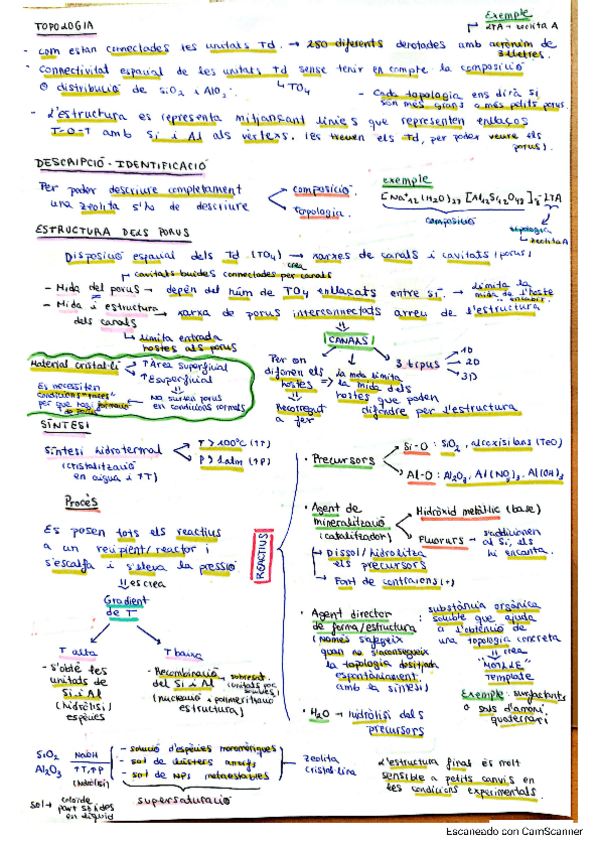 TOPOLOGIA
Exemple
LTA → zeolita A
- com estan connectades les unitats Td. → 280 diferents denotades amb acrònim de 3 lletres.
- Connectivitat espaial de les unitats Td sense tenir en compte la composició
o distribució de SiO2 i AlO2.
↳ TO4
- Cada topologia ens dirà si
son més grans o més petits porus.
- L'estructura es representa mitjançant línies que representen enllaços
T-O-T amb Si i Al als vèrtexs. (es treuen els Td, per poder veure els
porus)
DESCRIPCIÓ - IDENTIFICACIÓ
Per poder descriure completament
una zeolita s'ha de descriure
composició.
topologia.
exemple
[Na+12 (H2O)27 [Al12Si12O48]8-LTA
composició
topologia
zeolita A
ESTRUCTURA DELS PORUS
Disposició espaial dels Td (TO4) → crea xarxes de canals i cavitats (porus)
cavitats buides connectades per canals
- Mida del porus → depèn del núm de TO4 enllaçats entre si → limita la
mida de l'hoste
- Mida i estructura
dels canals
→ xarxa de porus interconnectats arreu de l'estructura
↳ limita entrada
hostes als porus
CANALS
Material cristal·lí
↑ Àrea superficial
↑ E superficial
Es necessiten
condicions
No surten porus
en condicions normals
Per on
difonen els
hostes
Recorregut
a fer
la mida limita
la mida dels
hostes que poden
difondre per l'estructura
3 tipus
1D
2D
3D
SÍNTESI
Síntesi hidrotermal
(cristalització
en aigua i ↑T)
T > 100°C (↑T)
P > 1 atm (↑P)
Procés
Es posen tots els reactius
a un recipient/reactor i
s'escalfa i s'eleva la pressió
es crea
Gradient
de T
T alta
- S'obté les
unitats de
Si i Al
(hidròlisi)
espècies
T baixa
- Recombinació
del Si i Al
(nucleació i polimerització
estructura)
REACTIUS
• Precursors
Si-O: SiO2, alcoxisilans (TEO)
Al-O: Al2O3, Al(NO3)3, Al(OH)3
• Agent de
mineralització
(catalitzador)
Hidròxid metàl·lic (base)
Fluorurs → s'addicionen
al Si, els
hi encanta.
- Dissol/hidrolitza
els precursors
- Font de contraions (+)
• Agent director
de forma/estructura
(només s'afegeix
quan no s'aconsegueix
la topologia desitjada
espontàniament
amb la síntesi)
: substància orgànica
soluble que ajuda
a l'obtenció de
una topologia concreta
crea
"MOTLLE"
TEMPLATE
Exemple: surfactants
o sals d'amoni
quaternari
• H2O → hidròlisi dels
precursors
SiO2
Al2O3
NaOH
↑T, ↑P
(hidròlisi)
- solució d'espècies monomèriques
- sol de clústers amorfs
- sol de NPs metaestables
supersaturació
zeolita
cristal·lina
L'estructura final és molt
sensible a petits canvis en
les condicions experimentals.
sol → col·loide
part sòlides
en líquid
Escaneado con CamScanner